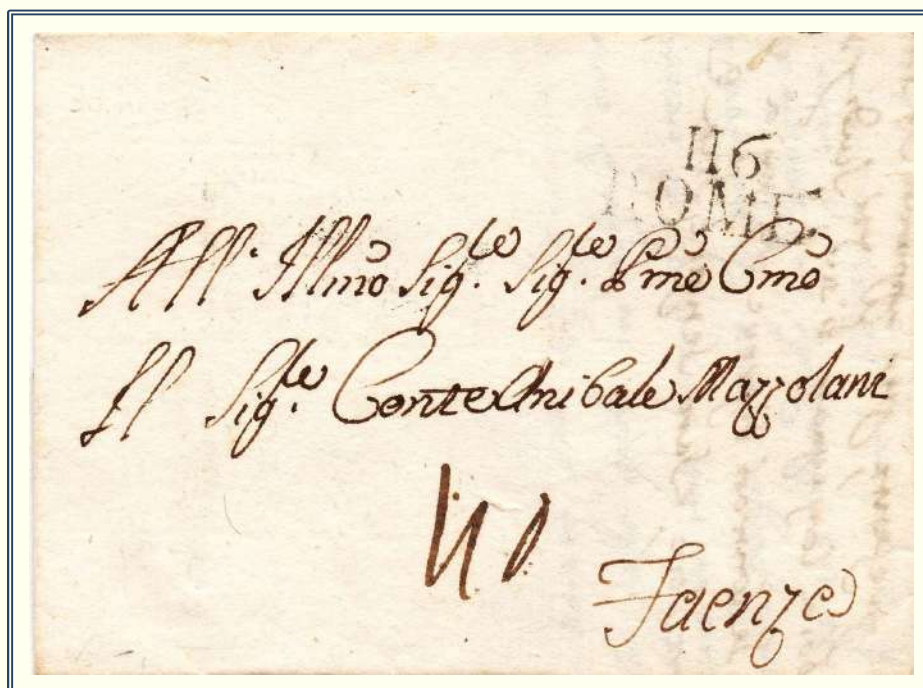 116
ROME.
All' Illmo Sig.re Sig.re Pmè Cmo
Il Sig.re Conte Anibale Mazzolani
Faenze